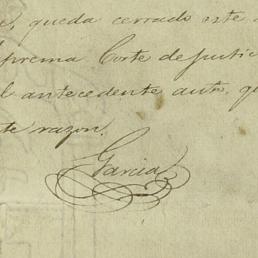 queda cerrado este
Suprema Corte de Justic
el antecedente auto, q
te razon.
Garcia